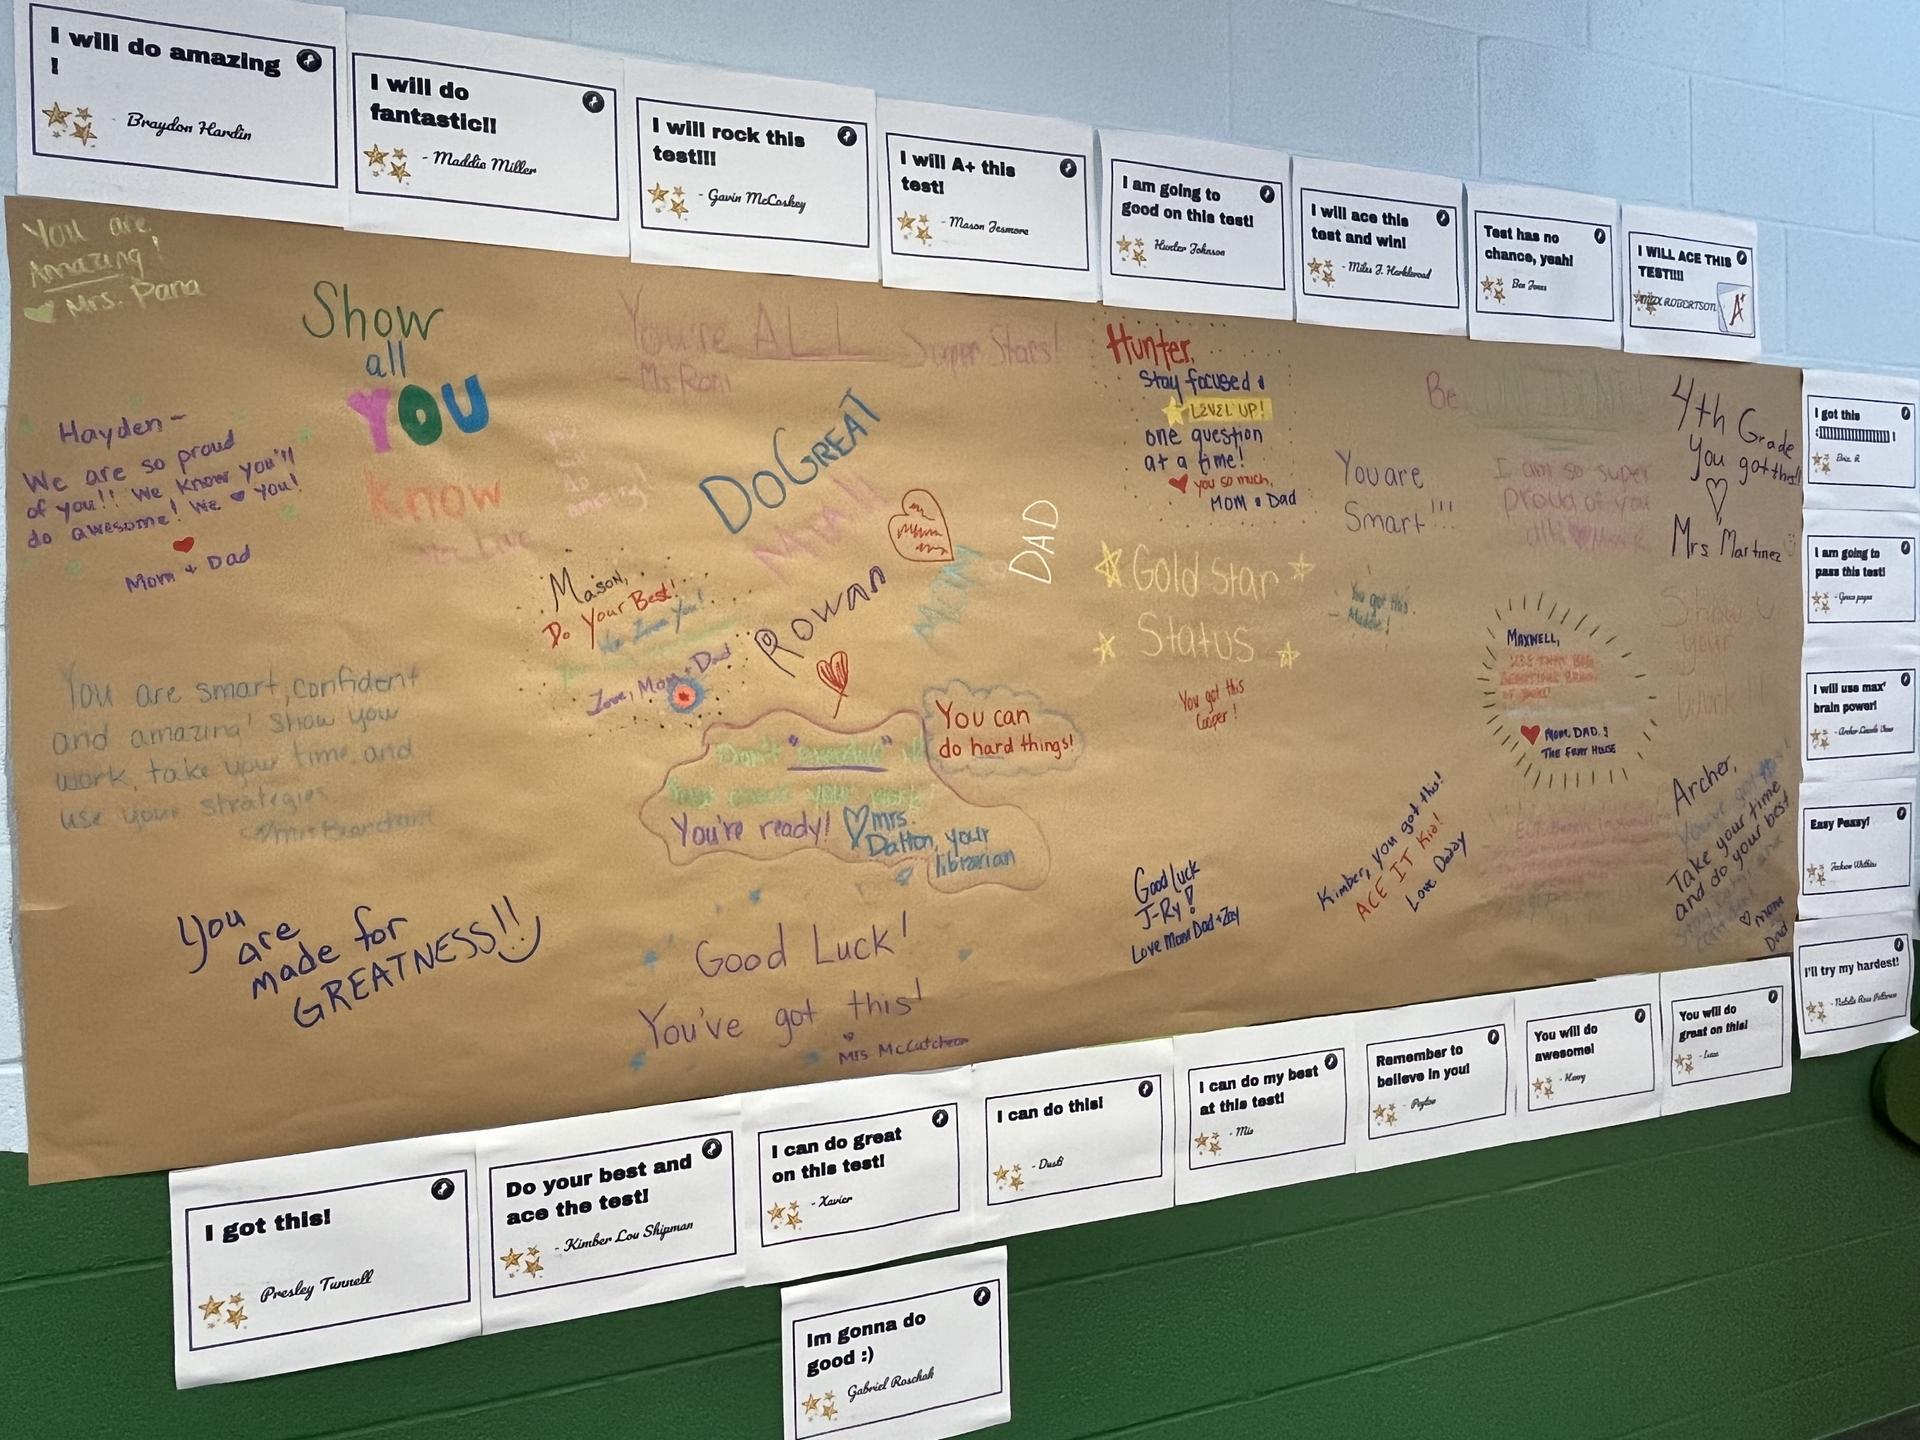 I will do amazing
!
- Braydon Hardin
I will do
fantastic!!
- Maddie Miller
I will rock this
test!!!
- Gavin McCoskey
I will A+ this
test!
- Mason Jesmore
I am going to
good on this test!
Hunter Johnson
I will ace this
test and win!
- Miles J. Harkleroad
Test has no
chance, yeah!
Ben Jones
I WILL ACE THIS
TEST!!!!
ROBERTSON
A+
You are
Amazing!
Mrs. Pana
Show
all
YOU
know
Hayden -
We are so proud
of you!! We know you'll
do awesome! We ♥ you!
Mom + Dad
You're ALL Super Stars!
- Ms Roni
DO GREAT
Mason,
Do Your Best!
We Love You!
Love, Mom + Dad
Rowan
MOM
DAD
Hunter,
Stay focused &
LEVEL UP!
one question
at a time!
♥ you so much,
MOM & Dad
Gold Star
Status
You got this
Cooper!
Be
You are
Smart!!!
I am so super
proud of you
You got this
4th Grade
You got this!!
Mrs. Martinez
MAXWELL,
♥ MOM, DAD, &
Show
your
work!!
You are smart, confident
and amazing! Show your
work, take your time, and
use your strategies
You can
do hard things!
Don't
You're ready! mrs.
Dalton, your
librarian
You
are
made for
GREATNESS!!
Good Luck!
You've got this!
Mrs. McCutcheon
Good Luck
J-Ry!
Love Mom Dad +
Kimber, you got this!
ACE IT Kid!
Love Daddy
Archer,
You've got this
Take your time
and do your best
♥ Mom
Dad
I got this
I am going to
pass this test!
I will use max'
brain power!
Easy Peasy!
I'll try my hardest!
I got this!
Presley Tunnell
Do your best and
ace the test!
- Kimber Lou Shipman
I can do great
on this test!
- Xavier
I can do this!
- Dusti
I can do my best
at this test!
- Mia
Remember to
believe in you!
- Peyton
You will do
awesome!
- Henry
You will do
great on this!
Im gonna do
good :)
Gabriel Roschak